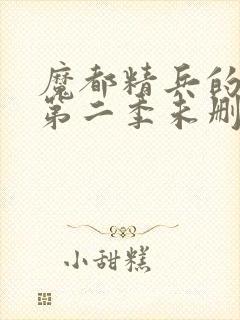 魔都精兵的
第二季未删
小甜糕